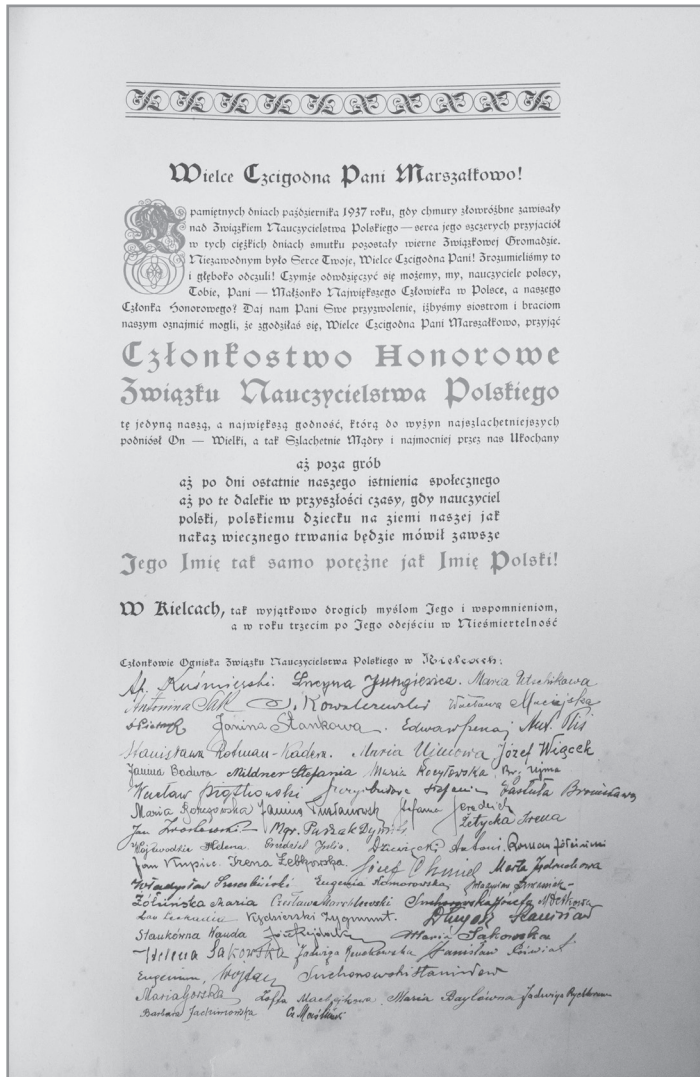 Wielce Czcigodna Pani Marszałkowo!
W pamiętnych dniach października 1937 roku, gdy chmury złowróżbne zawisały
nad Związkiem Nauczycielstwa Polskiego — serca jego szczerych przyjaciół
w tych ciężkich dniach smutku pozostały wierne Związkowej Gromadzie.
Niezawodnym było Serce Twoje, Wielce Czcigodna Pani! Zrozumieliśmy to
i głęboko odczuli! Czymże odwdzięczyć się możemy, my, nauczyciele polscy,
Tobie, Pani — Małżonko Największego Człowieka w Polsce, a naszego
Członka Honorowego? Daj nam Pani Swe przyzwolenie, iżbyśmy siostrom i braciom
naszym oznajmić mogli, że zgodziłaś się, Wielce Czcigodna Pani Marszałkowo, przyjąć
Członkostwo Honorowe
Związku Nauczycielstwa Polskiego
tę jedyną naszą, a największą godność, którą do wyżyn najszlachetniejszych
podniósł On — Wielki, a tak Szlachetnie Mądry i najmocniej przez nas Ukochany
aż poza grób
aż po dni ostatnie naszego istnienia społecznego
aż po te dalekie w przyszłości czasy, gdy nauczyciel
polski, polskiemu dziecku na ziemi naszej jak
nakaz wiecznego trwania będzie mówił zawsze
Jego Imię tak samo potężne jak Imię Polski!
W Kielcach, tak wyjątkowo drogich myślom Jego i wspomnieniom,
a w roku trzecim po Jego odejściu w Nieśmiertelność
Członkowie Ogniska Związku Nauczycielstwa Polskiego w Kielcach:
Kuśmierski. Lucyna Maria
Antonina Sak Kowalczewski Wacława Maciejska
Janina Stankowa.
Stanisława Maria Ujmowa Józef Wiącek
Janina Badura Mildner Stefania Maria Br. Ujma
Wacław Piątkowski Bronisława
Maria Janina
Jan Mgr. Irena
Helena. Antoni. Roman
Jan Kupiec. Irena Łebkowska. Józef Chmiel Marta
Władysław Eugenia Komorowska
Maria Czesława
Kędzierski Zygmunt. Stanisław
Staukówna Wanda Maria Sakowska
Helena Sakowska Jadwiga Stanisław
Eugenium Wojdan Suchonowski Stanisław
Maria Górska Zofia Maria Baylówna Jadwiga
Barbara